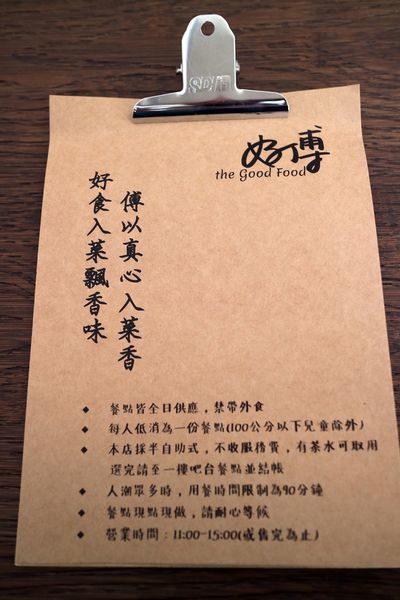 SDI
好丁博
the Good Food
傅以真心入菜香
好食入菜飄香味
◆ 餐點皆全日供應，禁帶外食
◆ 每人低消為一份餐點(100公分以下兒童除外)
◆ 本店採半自助式，不收服務費，有茶水可取用
選完請至一樓吧台餐點並結帳
◆ 人潮眾多時，用餐時間限制為90分鐘
◆ 餐點現點現做，請耐心等候
◆ 營業時間：11:00-15:00(或售完為止)